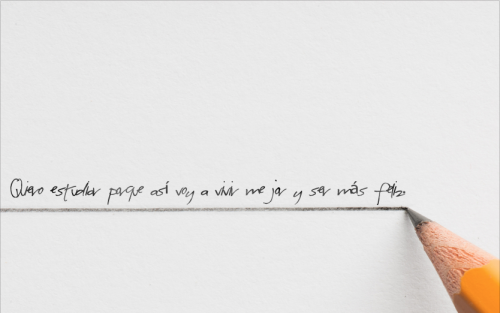 Quiero estudiar porque así voy a vivir mejor y ser más feliz.